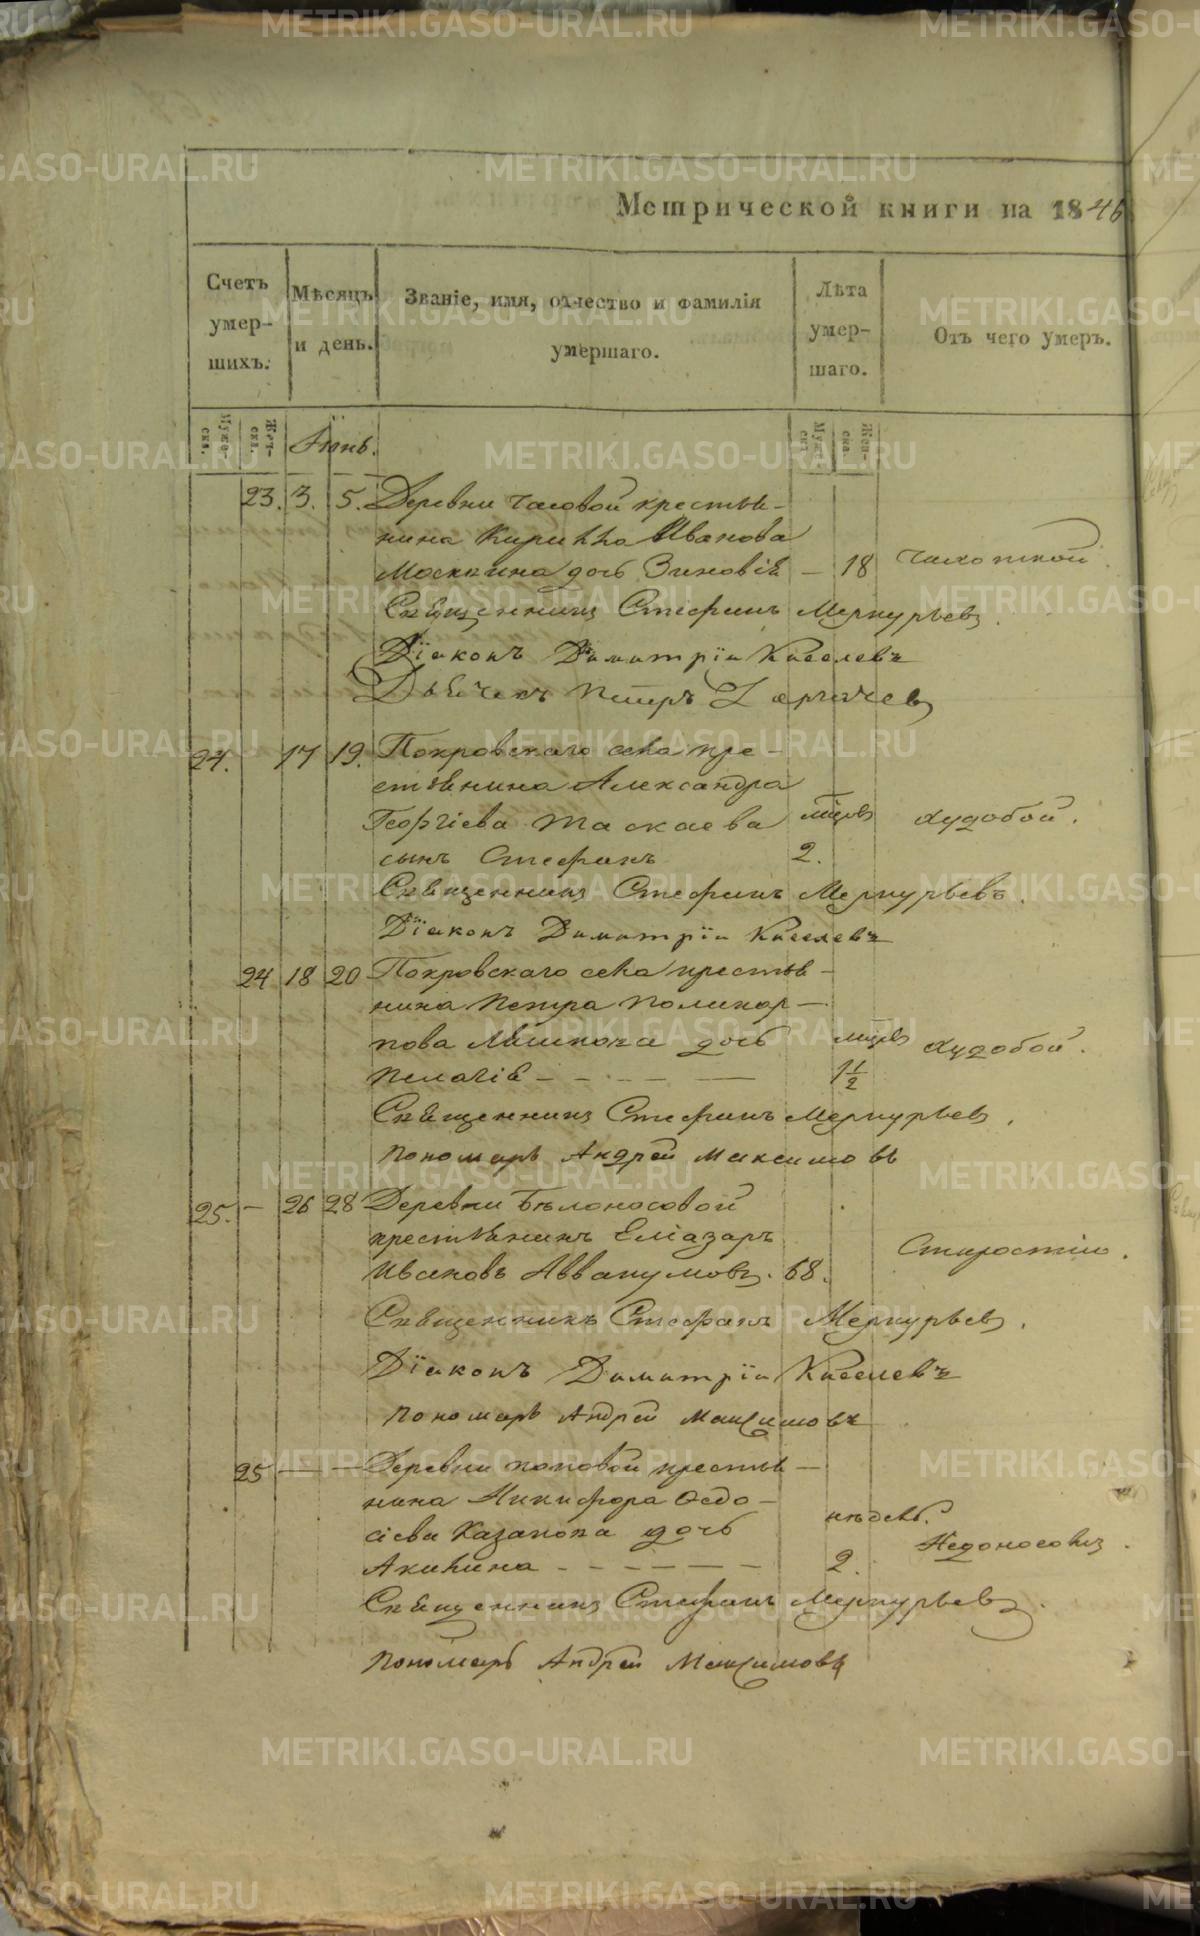 Метрической книги на 1846
Счетъ умер- шихъ.
Мѣсяцъ и день.
Званіе, имя, отчество и фамилія умершаго.
Лѣта умер- шаго.
Отъ чего умеръ.
Муже- ска.
Жен- ска.
Іюнь.
Муже ска
Жен- ска
23. 3. 5. Деревни Часовой крестья-
нина Кирилла Иванова
Москвина дочь Зиновія — 18 Чахоткой.
Священникъ Стефанъ Меркурьевъ.
Діаконъ Димитрій Киселевъ
Дьячекъ Петръ
24. 17 19. Покровскаго села кре-
стьянина Александра
Георгіева Таскаева мѣсяцъ худобой.
сынъ Стефанъ 2.
Священникъ Стефанъ Меркурьевъ.
Діаконъ Димитрій Киселевъ
24 18 20 Покровскаго села крестья-
нина Петра Поликар-
пова дочь мѣсяцъ худобой.
Пелагія — 1 1/2
Священникъ Стефанъ Меркурьевъ.
Пономарь Андрей Максимовъ
25. — 26 28 Деревни Бѣлоносовой
крестьянинъ Еліазаръ Старостію.
Ивановъ Аввакумовъ. 68.
Священникъ Стефанъ Меркурьевъ.
Діаконъ Димитрій Киселевъ
Пономарь Андрей Максимовъ
25 — — Деревни Поповой крестья-
нина Никифора Ѳедо-
сіева Казакова дочь недѣль. Недоносокъ.
Акилина — 2.
Священникъ Стефанъ Меркурьевъ.
Пономарь Андрей Максимовъ
METRIKI.GASO-URAL.RU